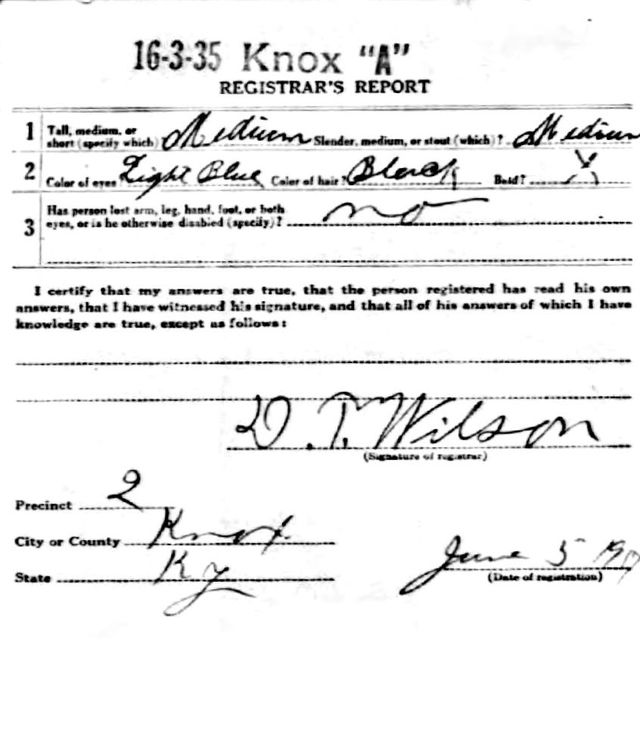 16-3-35 Knox "A"
REGISTRAR'S REPORT
1 Tall, medium, or short (specify which) Medium Slender, medium, or stout (which)? Medium
2 Color of eyes Light Blue Color of hair? Black Bald?
3 Has person lost arm, leg, hand, foot, or both eyes, or is he otherwise disabled (specify)? no
I certify that my answers are true, that the person registered has read his own
answers, that I have witnessed his signature, and that all of his answers of which I have
knowledge are true, except as follows:
D. T. Wilson
(Signature of registrar)
Precinct 2
City or County Knox
State Ky
June 5
(Date of registration)